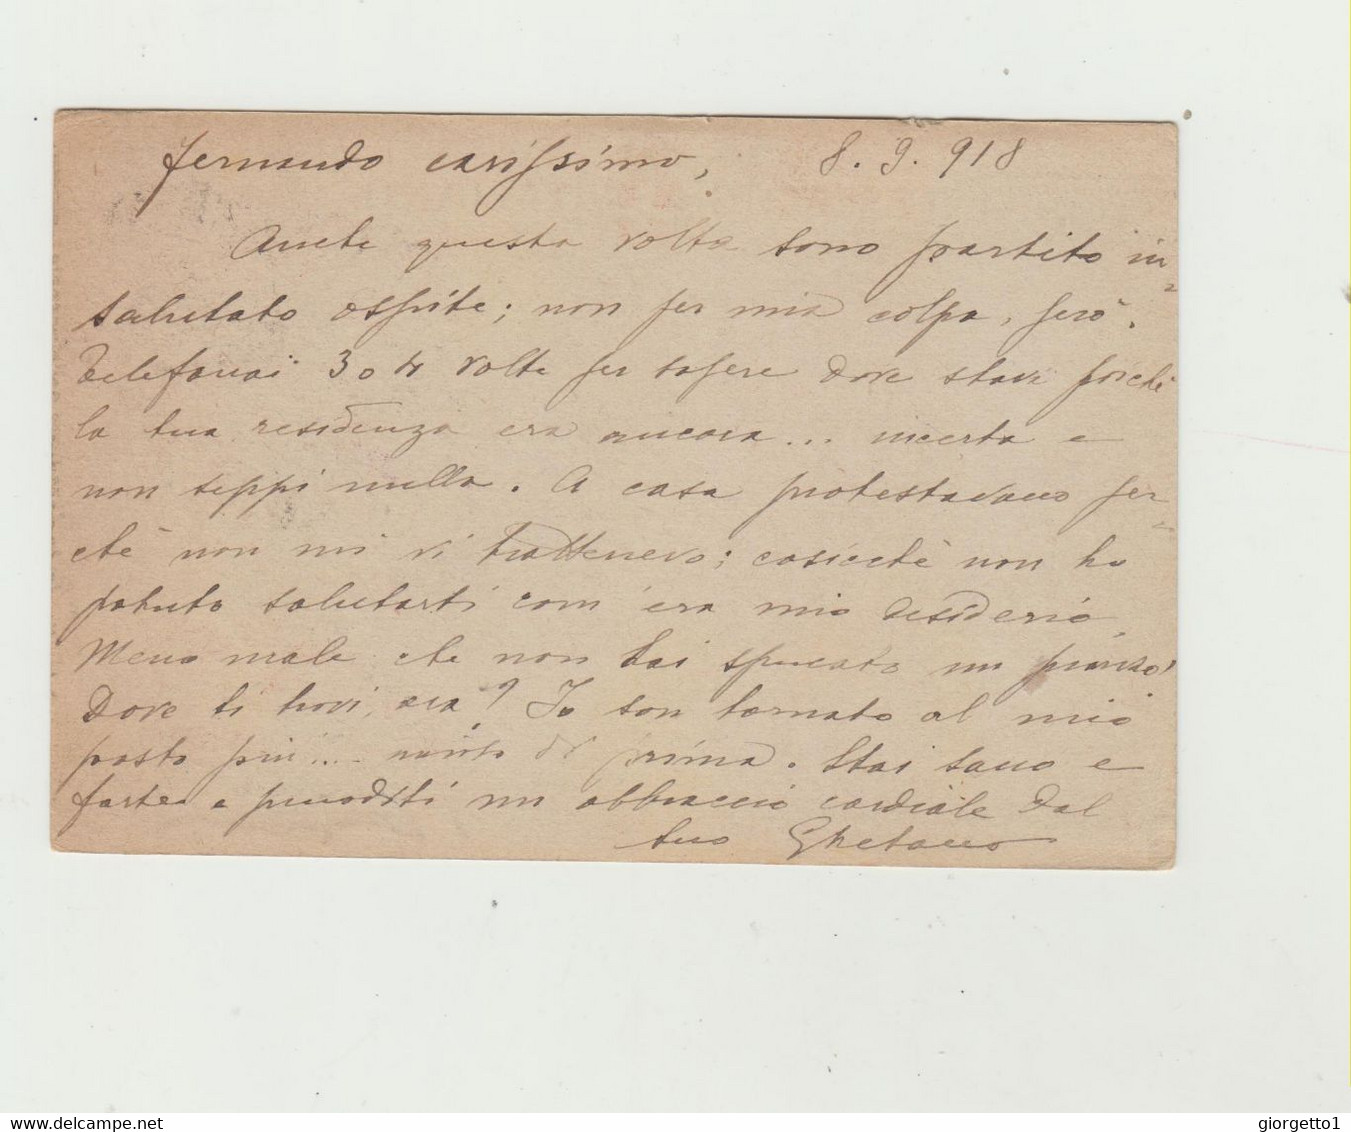 Fernando carissimo, 8.9.918
Anche questa volta sono partito in=
salutato ospite; non per mia colpa, però.
Telefonai 3 o 4 volte per sapere dove stavi poiché
la tua residenza era ancora... incerta e
non seppi nulla. A casa protestavano per=
chè non mi vi trattenevo; cosicchè non ho
potuto salutarti com'era mio desiderio.
Meno male che non hai sprecato un pranzo!
Dove ti trovi, ora? Io son tornato al mio
posto più.... di prima. Stai sano e
forte e prenditi un abbraccio cordiale dal
tuo Ghetano
giorgetto1